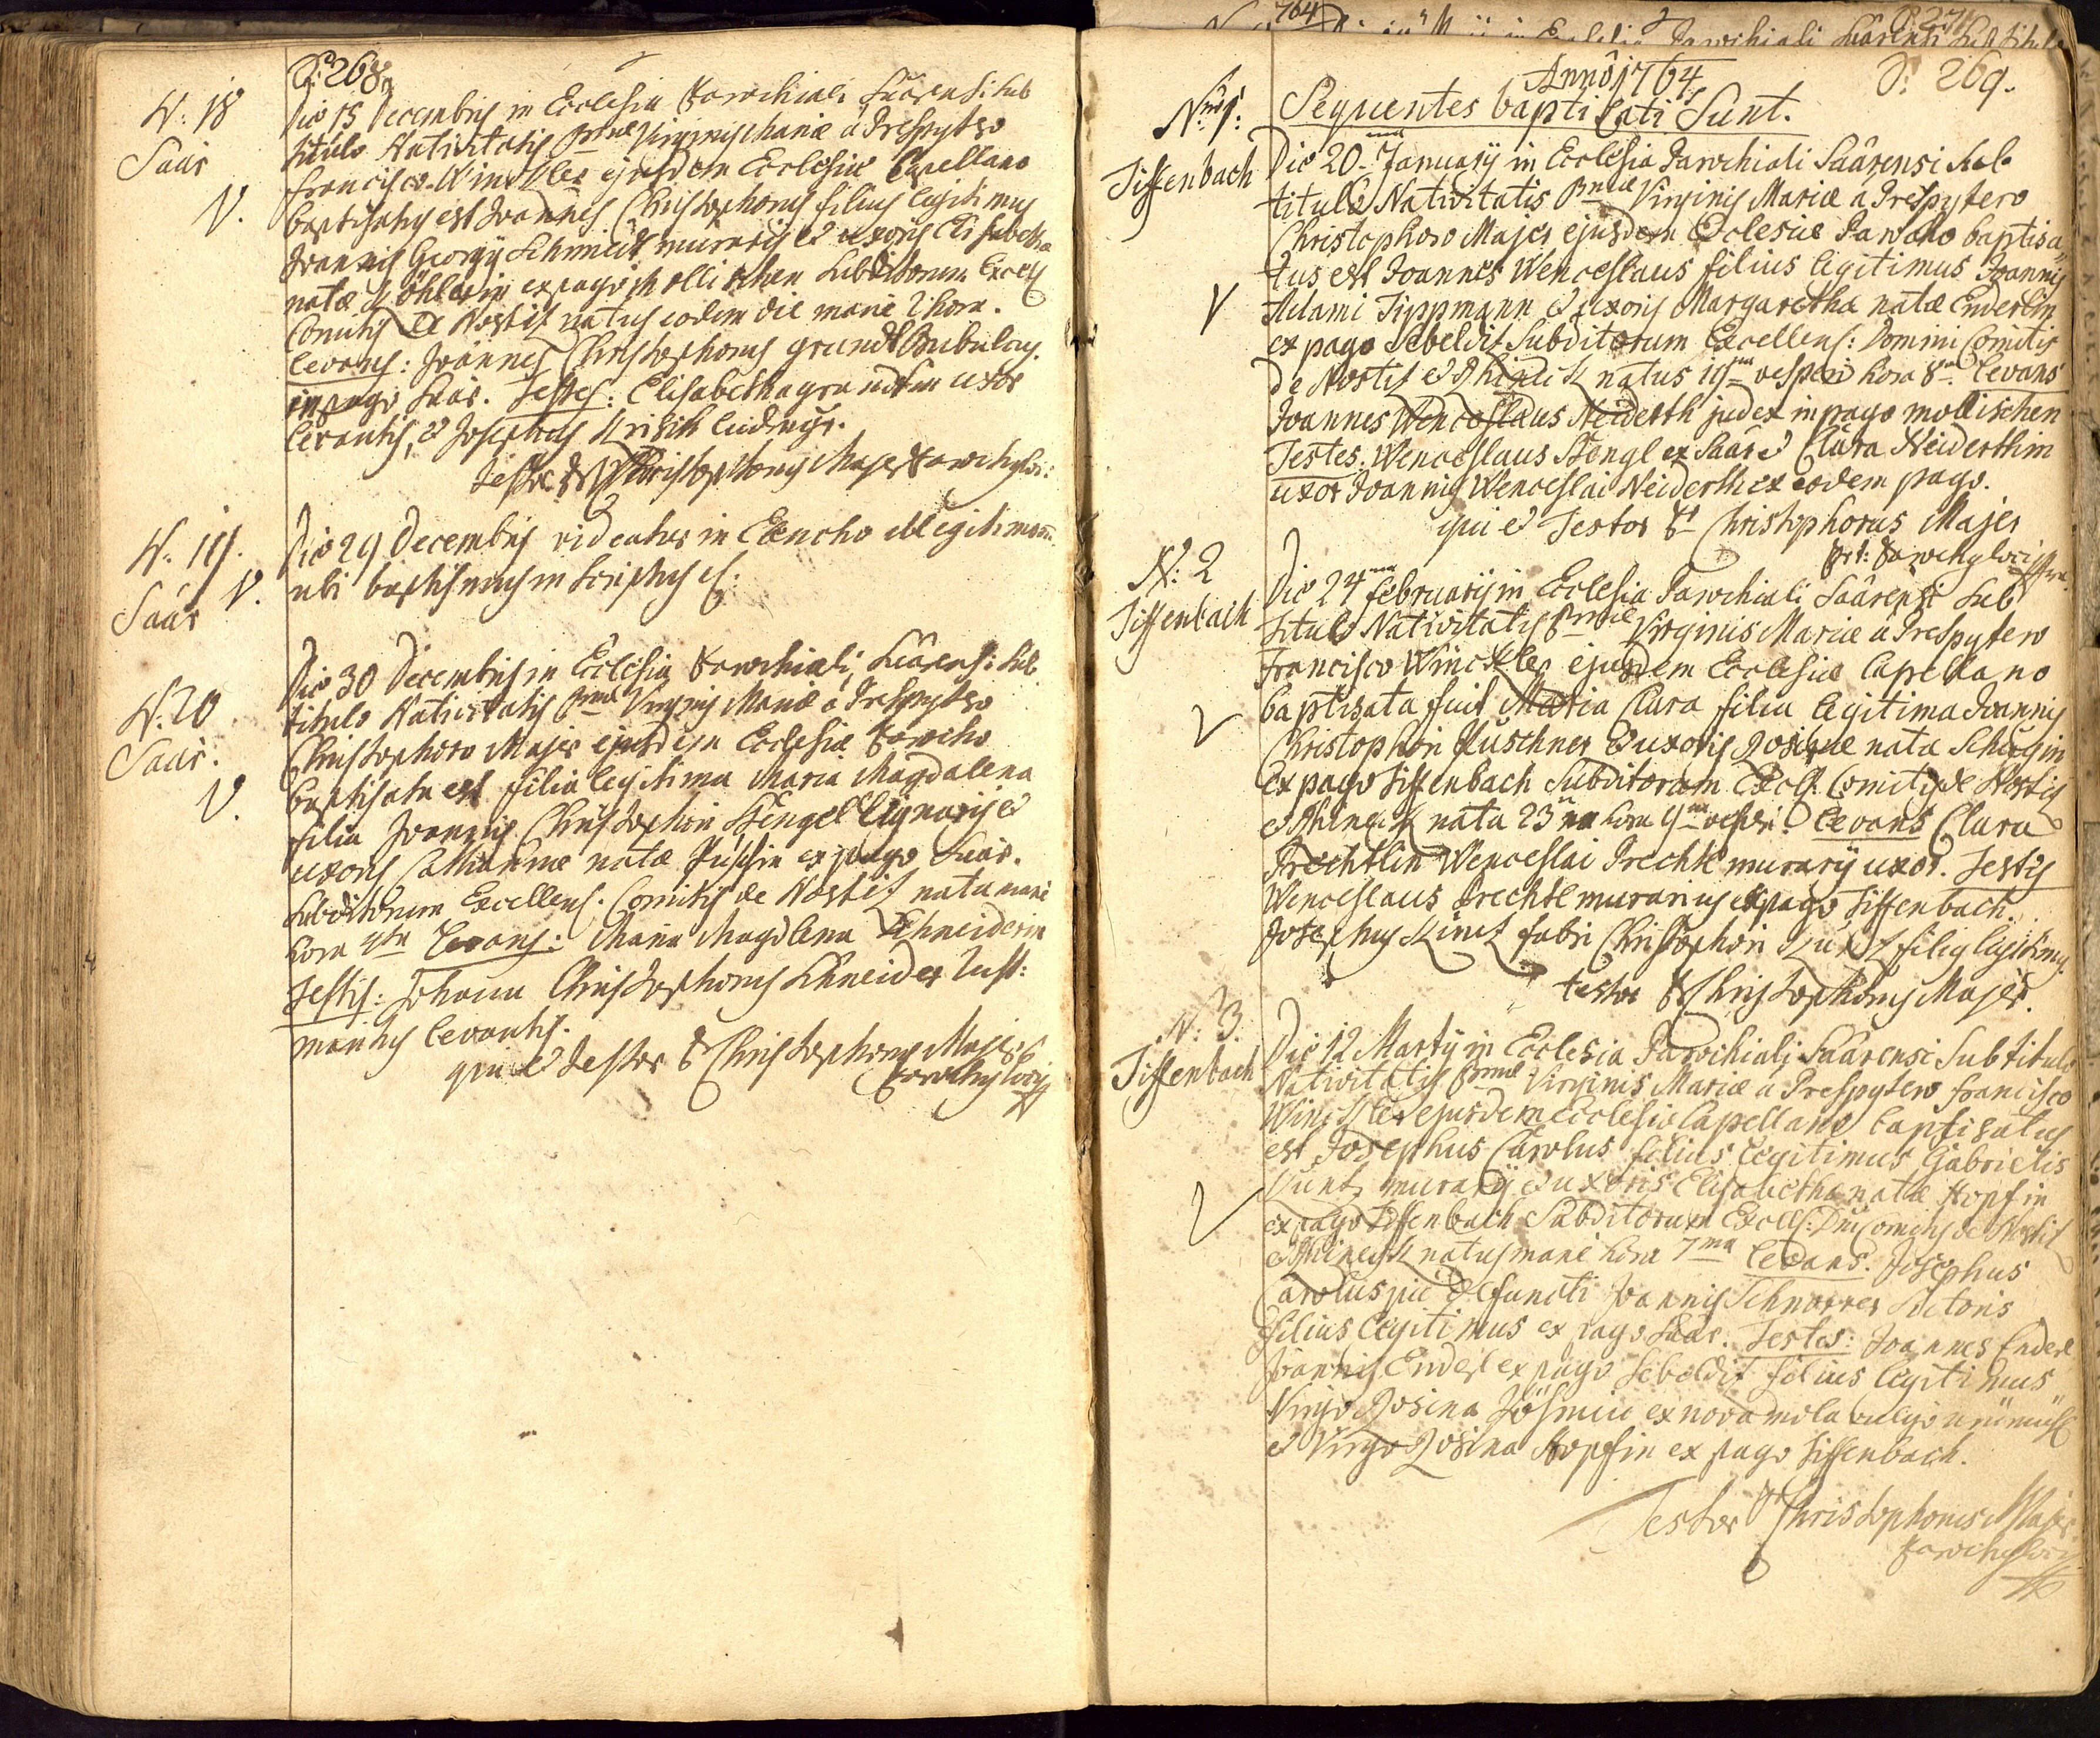 P: 268.
N: 18
Saâr
V.
Die 15 Decembris in Ecclesia Parochiali Saârensi Sub
titulo Nativitatis Bmae Virginis Mariae a Prespytero
Francisco Winckler ejusdem Ecclesiae Capellano
baptisatus est Joannes Christophorus filius legitimus
Joannis Georgÿ Schmidt murarÿ et uxoris Elisabetha
natae Köhlerin ex pago Mollischen Subditorum Excell
Comitis de Nostitz natus eodem die mane 2 hora.
Levans: Joannes Christophorus grundt Bubulcus
in pago Saâr. Testes: Elisabetha grundtin uxor
levantis, et Josephus ludimgr.
Testor P. Christophorus Majer Parochus loci:
N. 19.
Saâr
V.
Die 29 Decembris videatur in Elencho Illegitimorum
ubi baptismus inscriptus e:
N. 20
Saâr.
V.
Die 30 Decembris in Ecclesia Parochiali Saârensi Sub
titulo Nativitatis Bmae Virginis Mariae a Prespytero
Christophoro Majer ejusdem Ecclesiae Parocho
baptisata est filia legitima Maria Magdalena
filia Joannis Christophori Stengel lignarÿ et
uxoris Catharinae natae ex pago Saâr.
Subditorum Excellens. Comitis de Nostitz nata mane
hora 4ta Levans: Maria Magdlena Schneiderin
Testis: Johann Christophorus Schneider
maritus levantis.
qui et Testor P Christophorus Majer
Parochus loci
764
P. 271
in Ecclesia Parochiali Saârensi Sub titulo
Anno 1764
P: 269.
Sequentes baptisati Sunt.
N. 1:
Tiffenbach
V
Die 20ma Januarÿ in Ecclesia Parochiali Saârensi Sub
titulo Nativitatis Bmae Virginis Mariae a Prespytero
Christophoro Majer ejusdem Eclesiae Parocho baptisa
tus est Joannes Wenceslaus filius legitimus Joannis
Adami Tippmann et uxoris Margaretha natae Enderlin
ex pago Sebeldit Subditorum Excellens: Domini Comitis
de Nostitz et Rhineck natus 19na vesperi hora 8va. Levans
Joannes Wenceslaus Neiderth judex in pago mollischen
Testes: Wenceslaus Stengl ex Saâr et Clara Neiderthin
uxor Joannis Wenceslai Neiderth ex eodem pago.
qui et Testor P Christophorus Majer
p:t: Parochus loci
N: 2
Tiffenbach
V
Die 24ma februarÿ in Ecclesia Parochiali Saârensi Sub
titulo Nativitatis Bmae Virginis Mariae a Prespytero
Francisco Winckler ejusdem Ecclesiae Capellano
baptisata fuit Maria Clara filia legitima Joannis
Christophori Puschner et uxoris Rosinae nata Schugin
ex pago Tiffenbach Subditorum Excell. Comitis de Nostitz
et Rhineck nata 23 hora 9na vesperi. Levans Clara
Prechtlin Wenceslai Prechtl murarÿ uxor. Testis
Wenceslaus Prechtl murarius ex pago Tiffenbach.
Josephus Kuntz fabri Christophori Kuntz filius legitimus.
testor P Christophorus Majer.
N: 3.
Tiffenbach
V
Die 12 Martÿ in Ecclesia Parochiali Saârensi Sub titulo
Nativitatis Bmae Virginis Mariae a Prespytero francisco
Winckler ejusdem Ecclesiae Capellano baptisatus
est Josephus Carolus filius legitimus Gabrielis
Kuntz murarÿ et uxoris Elisabetha natae Hopfin
ex pago Tiffenbach Subditorum Excell: Dni Comitis de Nostitz
et Rhineck natus mane hora 7ma Levans. Josephus
Carolus pie defuncti Joannis Schnorrer
filius legitimus ex pago Saâr. Testes: Joannes Enderl
Joannis Enderl ex pago Sebeldit filius legitimus
Virgo Rosina ex nova mola vulgo
et Virgo Rosina Hopfin ex pago Tiffenbach.
Testor P Christophorus Majer
Parochus loci